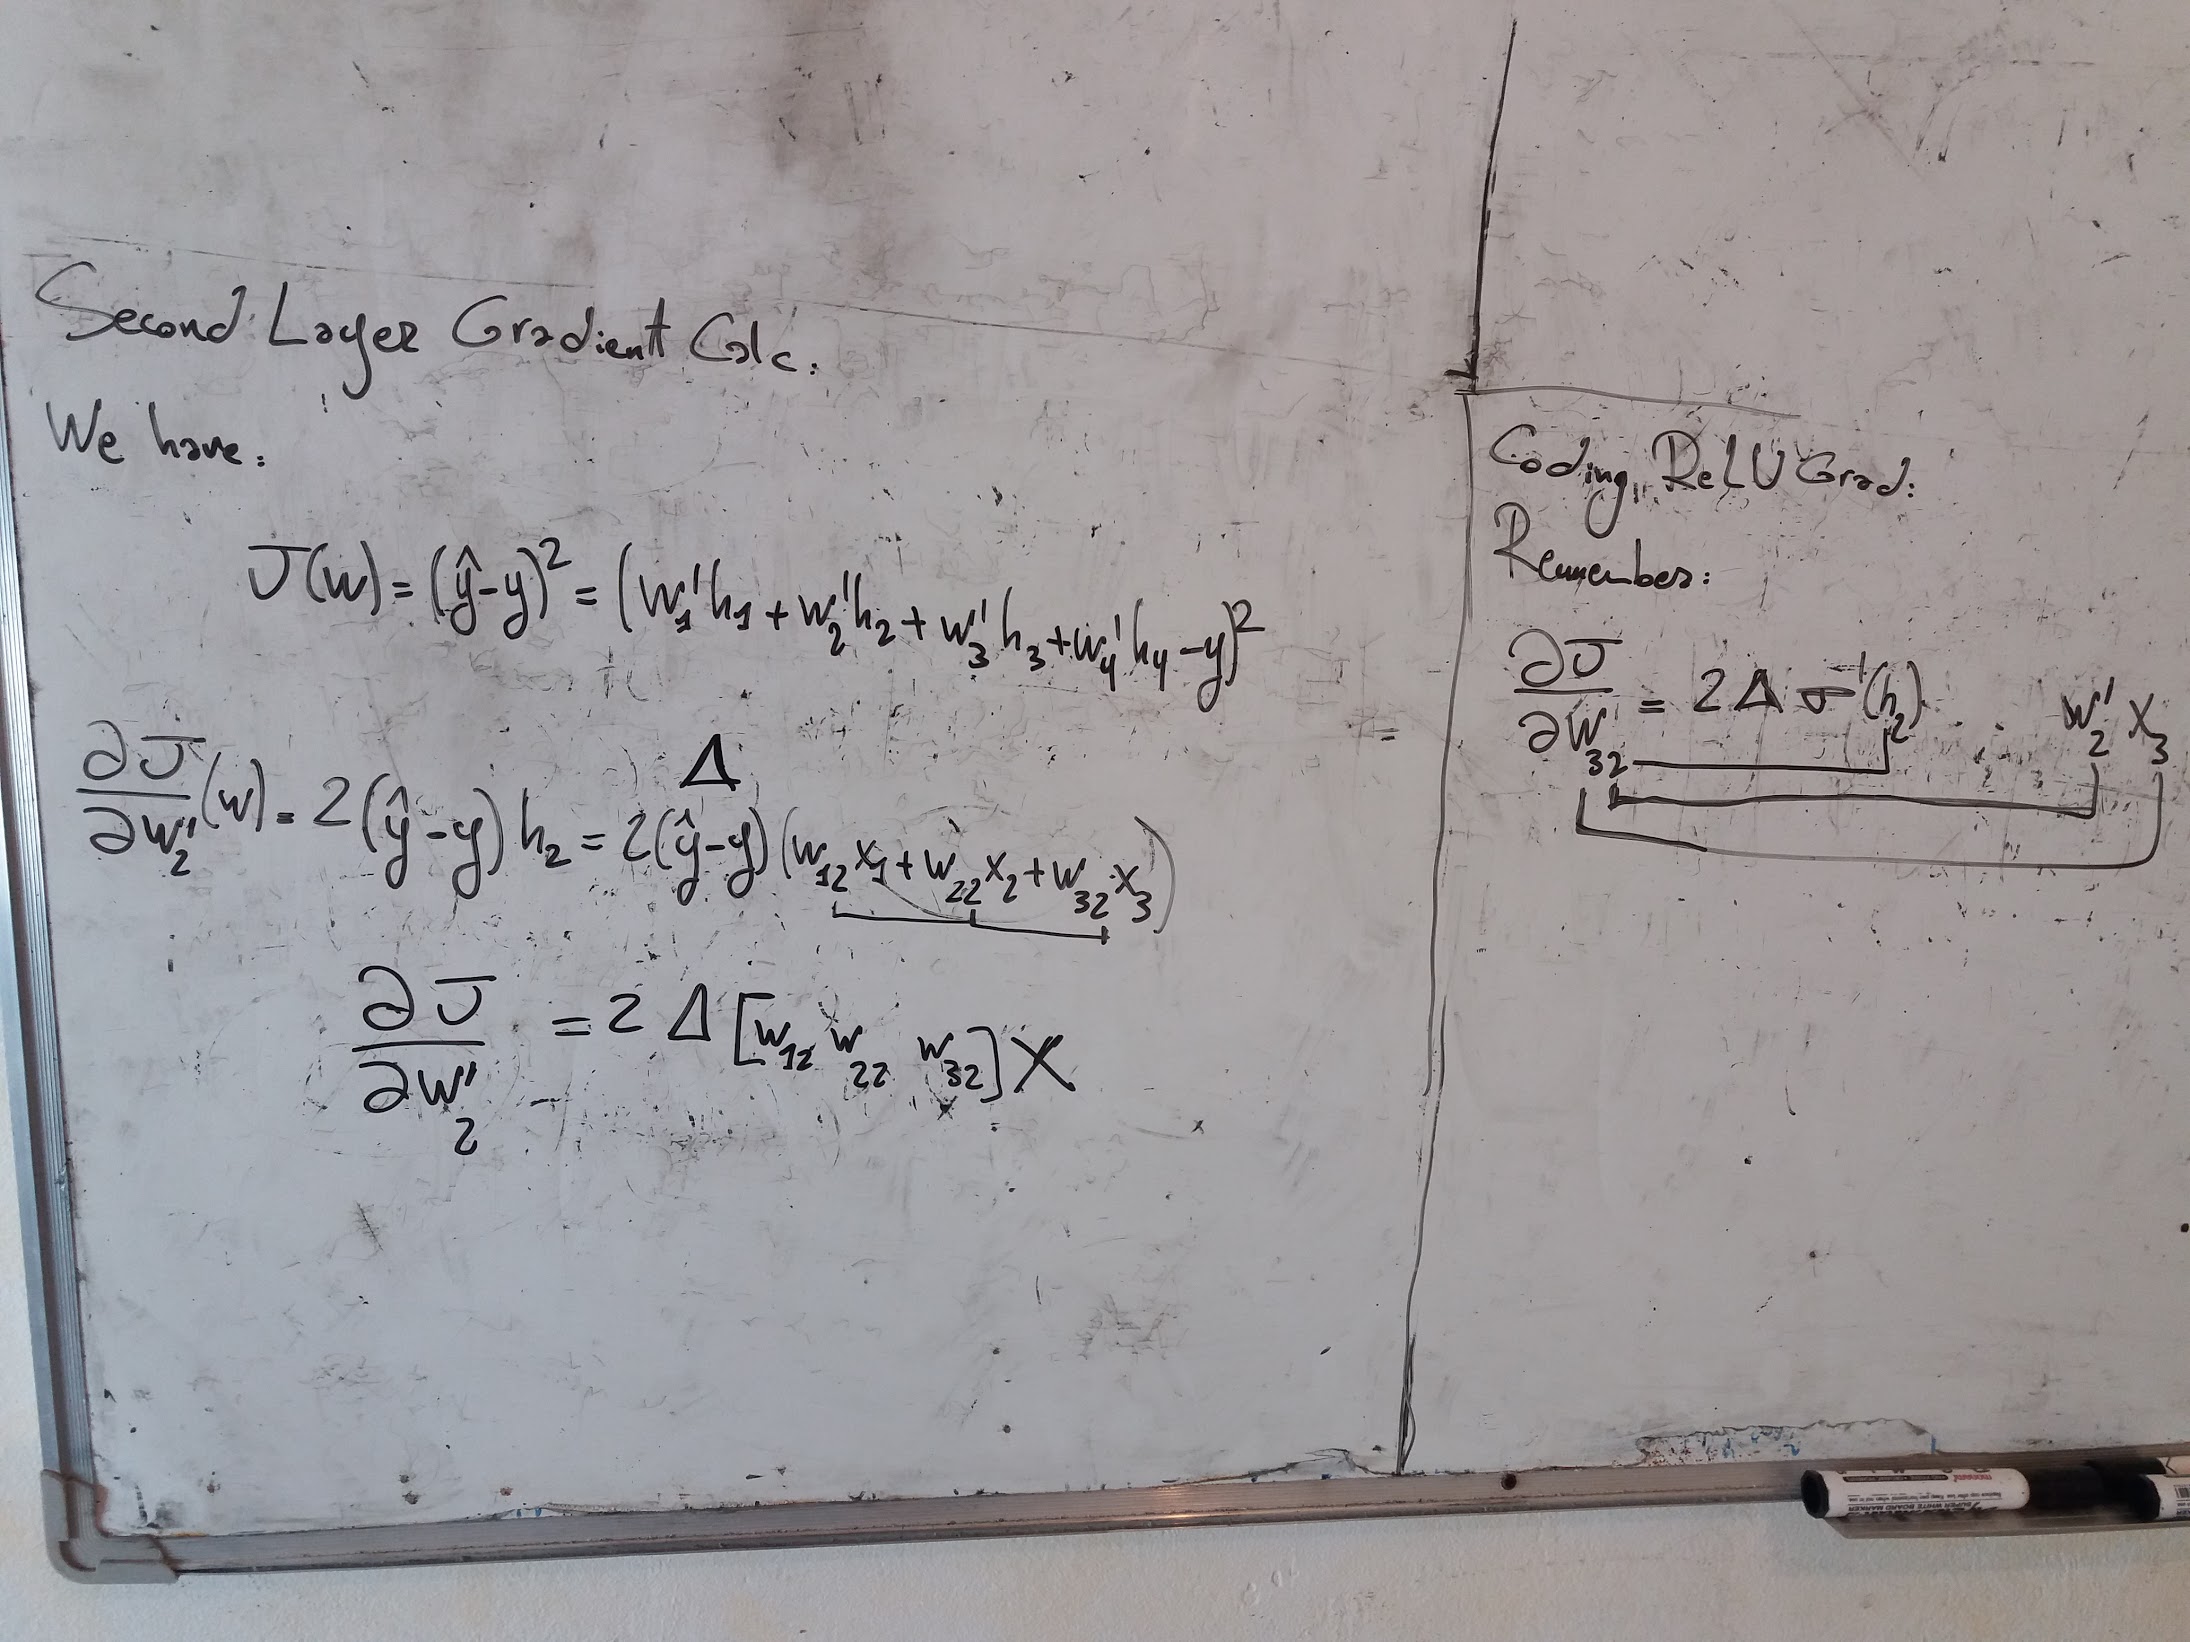 Second Layer Gradient Calc.
We have:
J(w) = (ŷ-y)² = (w₁'h₁ + w₂'h₂ + w₃'h₃ + w₄'h₄ - y)²
Δ
∂J/∂w₂' (w) = 2(ŷ-y) h₂ = 2(ŷ-y)(w₁₂x₁ + w₂₂x₂ + w₃₂x₃)
∂J/∂w₂' = 2 Δ [w₁₂ w₂₂ w₃₂] X
=
Coding ReLU Grad:
Remember:
∂J/∂w₃₂ = 2 Δ σ'(h₂) . . w₂' x₃
SUPER WHITE BOARD MARKER